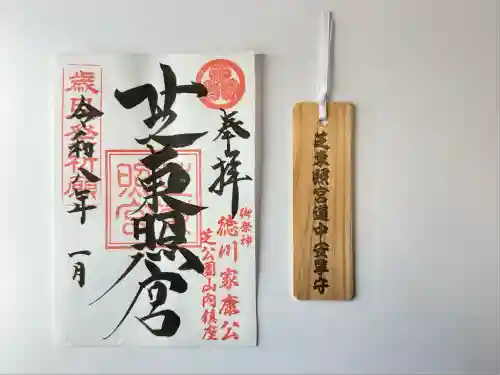 奉拝
御祭神
徳川家康公
芝公園山内鎮座
芝東照宮
令和八年 一月
芝東照宮道中安早守